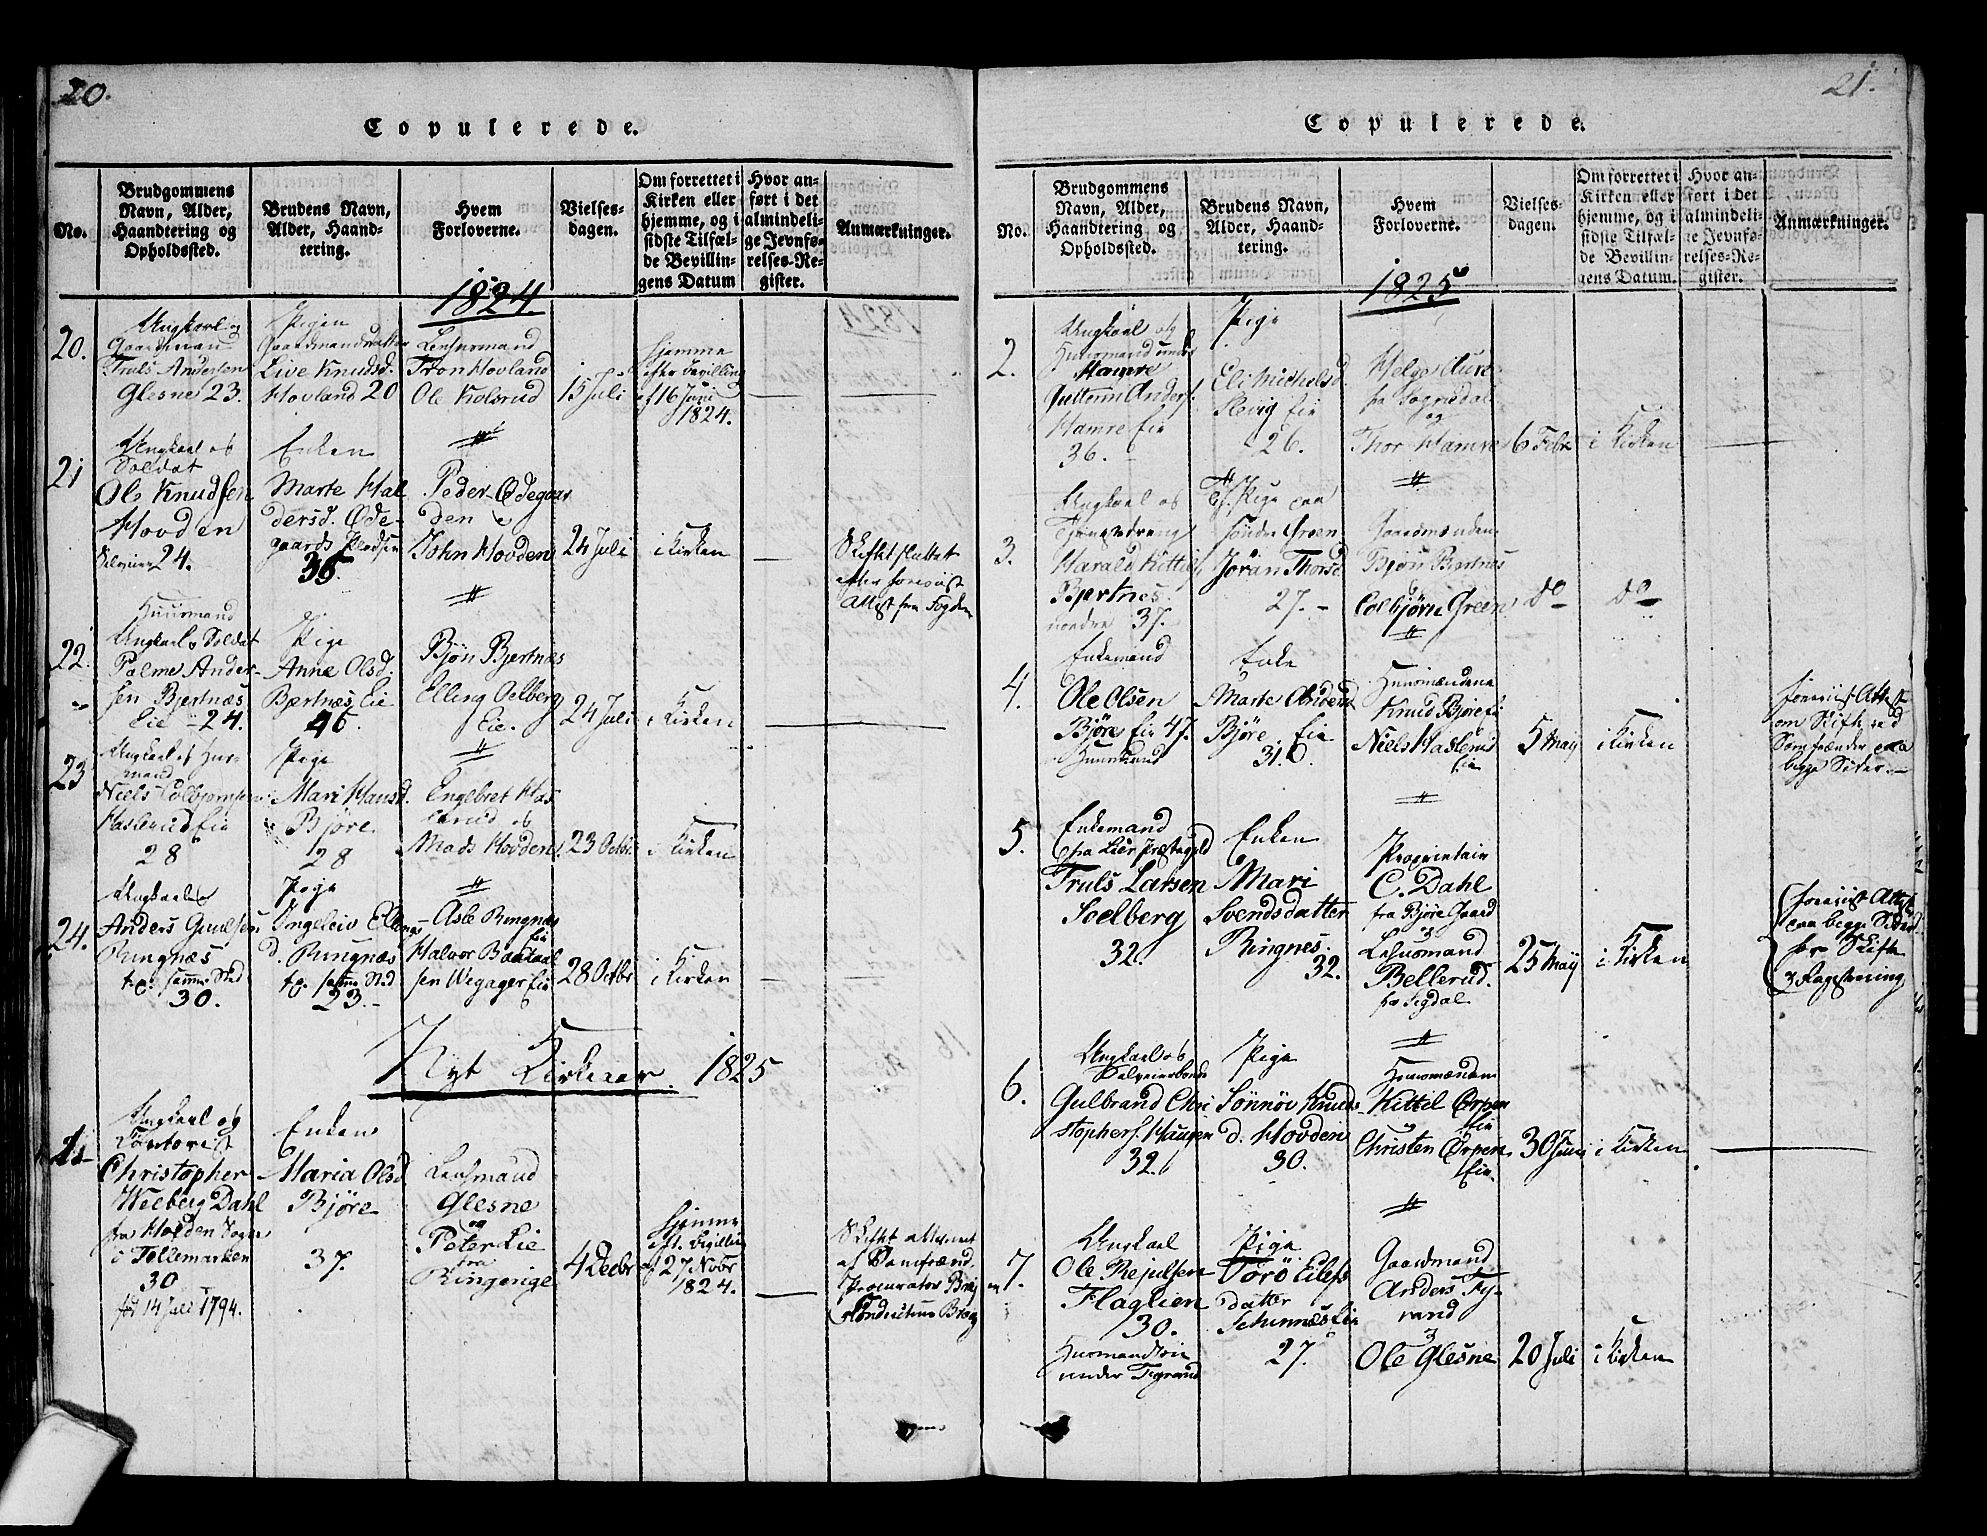 20.
Copulerede.
No.
Brudgommens Navn, Alder, Haandtering og Opholdssted.
Brudens Navn, Alder, Haandtering.
Hvem Forloverne.
Vielsesdagen.
Om forrettet i Kirken eller hjemme, og i sidste Tilfælde Bevillingens Datum
Hvor anført i det almindelige Jevnførelses-Register.
Anmærkninger.
1824.
20.
Ungkarl og
Gaardmand
Truls Andersen
Glesne 23.
Pigen
Gaardmandsdatter
Live Knudsd.
Hovland 20
Lensmand
Tron Hovland
Ole Kolsrud
15 Juli
hjemme
efter Bevilling
af 16 Juni
1824.
21
Ungkarl og
Soldat
Ole Knudsen
Hovden
24.
Enken
Marte Hal
dersd. Øde-
gaards
36.
Peder Ødegaar
den
John Hovden
24 Juli
i Kirken
Skifte sluttet
efter foreviist
Attest fra Fogden
22.
Huusmand
Ungkarl Soldat
Palme Ander-
sen Bjertnæs
Eie - 24.
Pige
Anne Olsd.
Bjertnæs Eie
46.
Bjøn Bjertnæs
Elling Oelberg
Eie.
24 Juli
i Kirken
23
Ungkarl og Huus-
mand
Niels Colbjørnsen
Haslerud Eie
28
Pige
Mari Hansd.
Bjøre
28
Engebret Has
lerud og
Mads Hovden
23 Octbr.
i Kirken
24.
Ungkarl
Anders Guulsen
Ringnæs
samme Sted
30.
Pige
Ingeleiv Ellings
d. Ringnæs
samme Sted
23.-
Asle Ringnæs
Eie
Halvor
sen Wegager Eie
28 Octbr
i Kirken
Nyt Kirkeaar. 1825
1
Ungkarl og
Christopher
Weeberg Dahl
fra Holden Sogn
i Tellemarken
30
fød 14 Juli 1794.
Enken
Maria Olsd
Bjøre
37.
Lensmand
Glesne
og
Peter Lie
fra
Ringerige
4 Decbr
hjemme
eft. Bevilling
af 27 Novbr
1824.
Skifte attesteret
af
Procurator
21.
Copulerede.
No.
Brudgommens Navn, Alder, Haandtering og Opholdssted.
Brudens Navn, Alder, Haandtering.
Hvem Forloverne.
Vielsesdagen.
Om forrettet i Kirken eller hjemme, og i sidste Tilfælde Bevillingens Datum.
Hvor anført i det almindelige Jevnførelses-Register.
Anmærkninger.
1825
2.
Ungkarl og
Huusmand under
Hamre
Guttorm Anders.
Hamre Eie
36.
Pige
Eli Michelsd.
Slevig Eie
26.
Helge Aure
fra Sognedal
og
Thor Hamre
6 Febr
i Kirken
3.
Ungkarl og
Tjenestedreng
Harald Kittils.
Bjertnes
nordre 37.
Pige paa
søndre Green
Jøran Thorsd
27. -
Gaardmændene
Bjøn Bertnes
Colbjørn Green
do
do
4.
Enkemand
Ole Olsen
Bjøre Eie 47.
Huusmand
Enke
Marte Andersd
Bjøre Eie
31.
Huusmændene
Knud Bjøre Eie
Niels Haslerud
Eie
5 Maij
i Kirken
foreviist Attest
om Skifte ved
Samfrænder paa
begge Sider.-
5.
Enkemand
fra Lier Præstegield
Truls Larsen
Soelberg
32.
Enken
Mari
Svendsdatter
Ringnes.
32.
Proprietair
C. Dahl
fra Bjøre Gaard
Lensmand
Bellerud
fra Sigdal
25 Maij
i Kirken
foreviist Attest
paa begge Sider
for Skifte
6.
Ungkarl og
Gulbrand Chri
stophers. Haugen
32.
Pige
Sønnøv Knuds-
d. Hovden
30.
Huusmændene
Kittel Ørpen
Eie
Christen Ørpen
Eie.
30 Juni
i Kirken
7.
Ungkarl
Ole Rejulsen
Flaglien
30.
Huusmandsøn
under Tyrand
Pige
Torø Eilefs
datter
27.
Gaardmand
Anders Ty-
rand
Ole Glesne
20 Juli
i Kirken